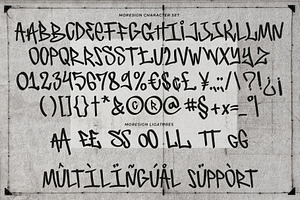 MORESIGN CHARACTER SET
AABBCDEEFFGGHIIJJJKLLMN
OOPQRRSSSTLUUVWWXYYZ
0123456789%€$¢£¥.,:;/\|?!¿¡
()[]{}†*&©®@#§+x=_°|
MORESIGN LIGATURES
AA EE SS OO LL TT GG
MÛLTÌLÏÑGÚÅL SÜPPÒRT